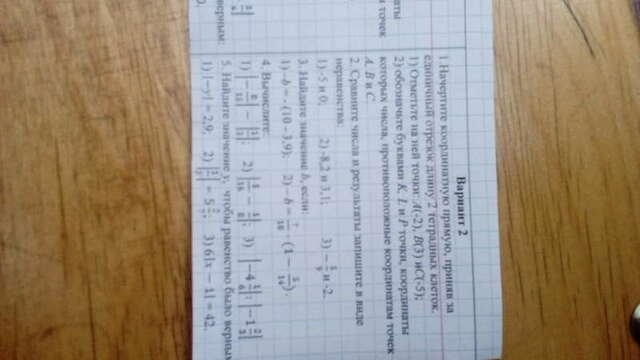 Вариант 2
1. Начертите координатную прямую, приняв за
единичный отрезок длину 2 тетрадных клеток.
1) Отметьте на ней точки: A(-2), B(3) и C(-5);
2) обозначьте буквами K, L и P точки, координаты
которых числа, противоположные координатам точек
A, B и C.
2. Сравните числа и результаты запишите в виде
неравенства:
1) -5 и 0; 2) -8,2 и 3,1; 3) и -2.
3. Найдите значение b, если:
1) -b = -(10 - 3,9); 2) -b =
4. Вычислите:
1) 2) 3)
5. Найдите значение y, чтобы равенство было верным:
1) |-y| = 2,9; 2) 3) 6|x - 1| = 42.